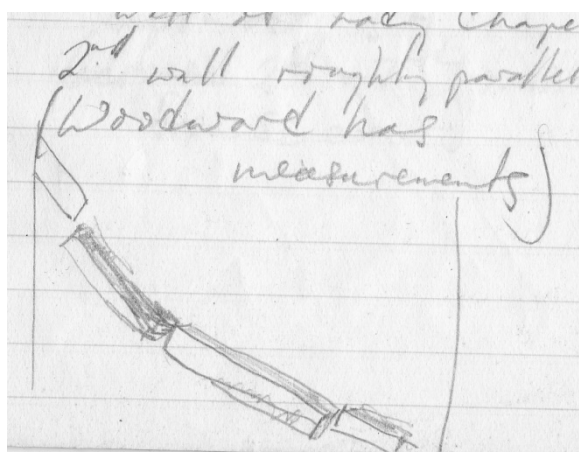 wall of Lady Chape
2nd wall roughly parallel
(Woodward has
measurements)